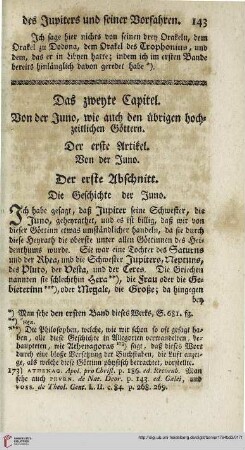 des Jupiters und seiner Vorfahren. 143
Ich sage hier nichts von seinen drey Orakeln, dem
Orakel zu Dodona, dem Orakel des Trophonius, und
dem, das er in Libyen hatte; indem ich im ersten Bande
bereits hinlänglich davon geredet habe *).
Das zweyte Capitel.
Von der Juno, wie auch den übrigen hoch-
zeitlichen Göttern.
Der erste Artikel.
Von der Juno.
Der erste Abschnitt.
Die Geschichte der Juno.
Ich habe gesagt, daß Jupiter seine Schwester, die
Juno, geheyrathet, und es ist billig, daß wir von
dieser Göttinn etwas umständlicher handeln, da sie durch
diese Heyrath die oberste unter allen Göttinnen des Hei-
denthums wurde. Sie war eine Tochter des Saturns
und der Rhea, und die Schwester Jupiters, Neptuns,
des Pluto, der Vesta, und der Ceres. Die Griechen
nannten sie schlechthin Hera **), die Frau oder die Ge-
bieterinn ***), oder Megale, die Große; da hingegen
bey
*) Man sehe den ersten Band dieses Werks, S. 631. fg.
***) Die Philosophen, welche, wie wir schon so oft gesagt ha-
ben, alle diese Geschichte in Allegorien verwandelten, be-
haupteten, wie Athenagoras sagt, daß dieses Wort durch
eine bloße Versetzung der Buchstaben, die Luft anzei-
ge, als welche diese Göttinn physisch betrachtet
173) ATHENAG. Apol. pro Christ. p. 186. ed.
sehe auch de Nat. Deor. p. 143. ed. Galei, und
VOSS. de Theol. Gent. L. II. c. 84. p. 268. 269.